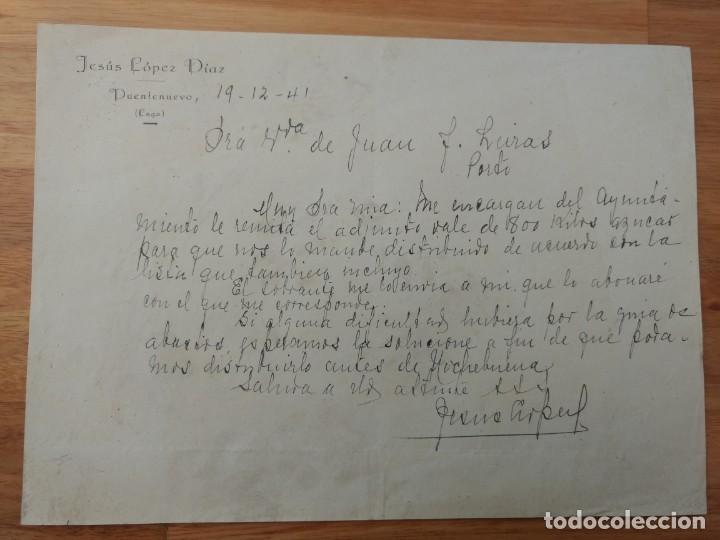 Jesús López Díaz
Puentenuevo, 19-12-41
(Lugo)
Sra Vda de Juan F. Leiras
Porto
Muy Sra mia: Me encargan del Ayunta-
miento le remita el adjunto vale de 800 Kilos azucar
para que nos lo mande distribuido de acuerdo con la
lista que tambien incluyo.
El sobrante me lo envia a mi que lo abonaré
con el que me corresponde.
Si alguna dificultad hubiera por la guia de
abastos, esperamos la solucione a fin de que poda-
mos distribuirlo antes de Nochebuena
Saluda a Vd
Jesus Lopez
todocoleccion.net